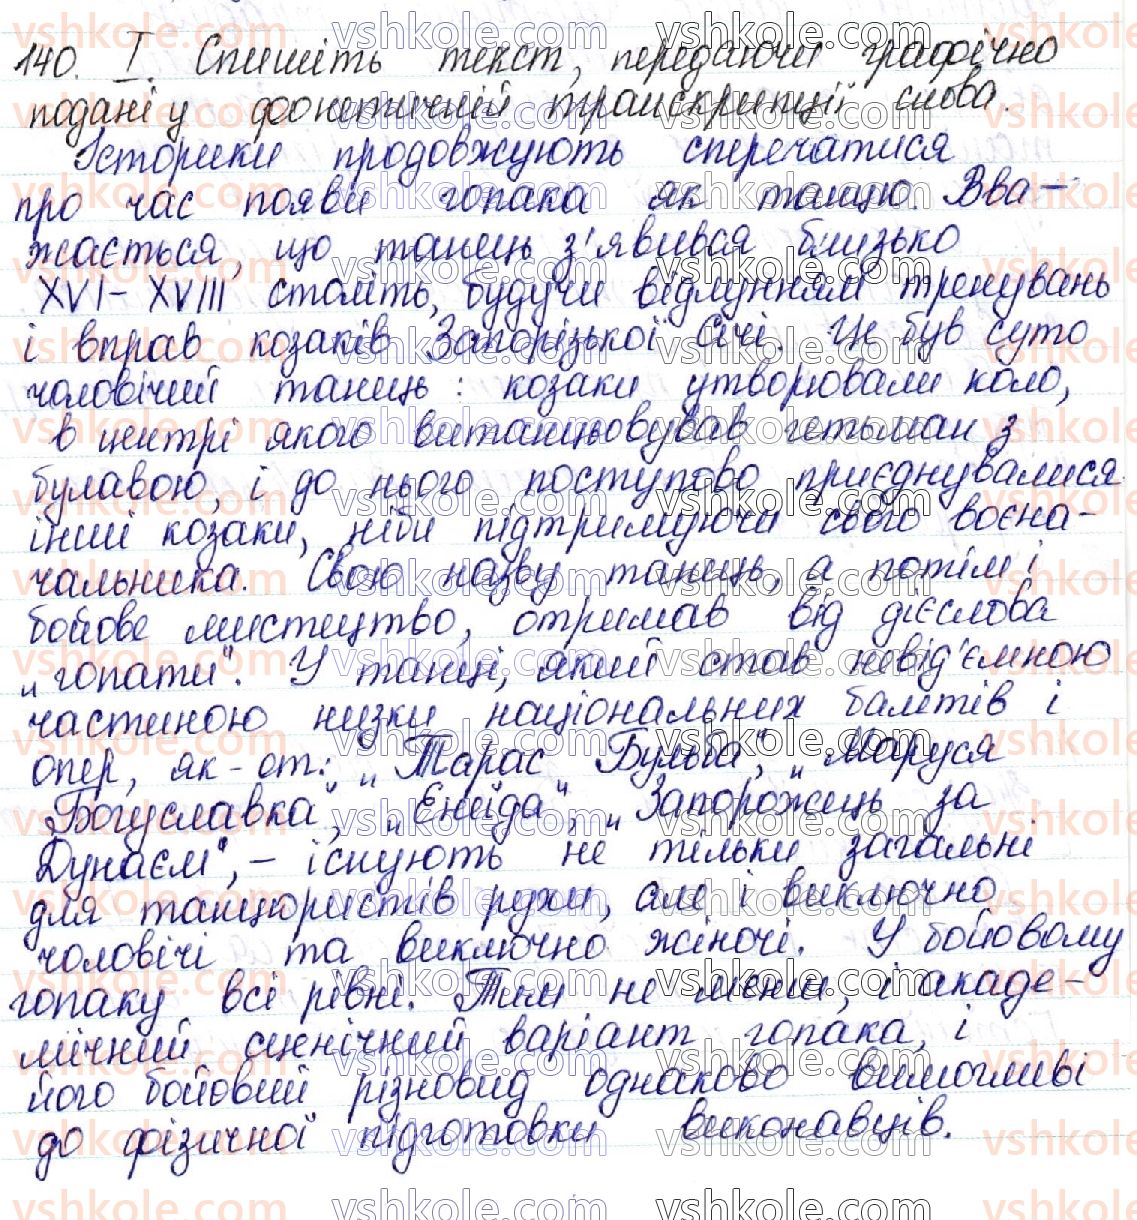 140. I. Спишіть текст, передаючи графічно
подані у фонетичній транскрипції слова.
Історики продовжують сперечатися
про час появи гопака як танцю. Вва-
жається, що танець з'явився близько
XVI–XVIII століть, будучи відлунням тренувань
і вправ козаків Запорізької Січі. Це був суто
чоловічий танець: козаки утворювали коло,
в центрі якого витанцьовував гетьман з
булавою, і до нього поступово приєднувалися
інші козаки, ніби підтримуючи свого воєна-
чальника. Свою назву танець, а потім і
бойове мистецтво, отримав від дієслова
„гопати". У танці, який став невід'ємною
частиною низки національних балетів і
опер, як-от: „Тарас Бульба", „Маруся
Богуславка", „Енеїда", „Запорожець за
Дунаєм", – існують не тільки загальні
для танцюристів рухи, але і виключно
чоловічі та виключно жіночі. У бойовому
гопаку всі рівні. Тим не менш, і акаде-
мічний сценічний варіант гопака, і
його бойовий різновид однаково вимогливі
до фізичної підготовки виконавців.